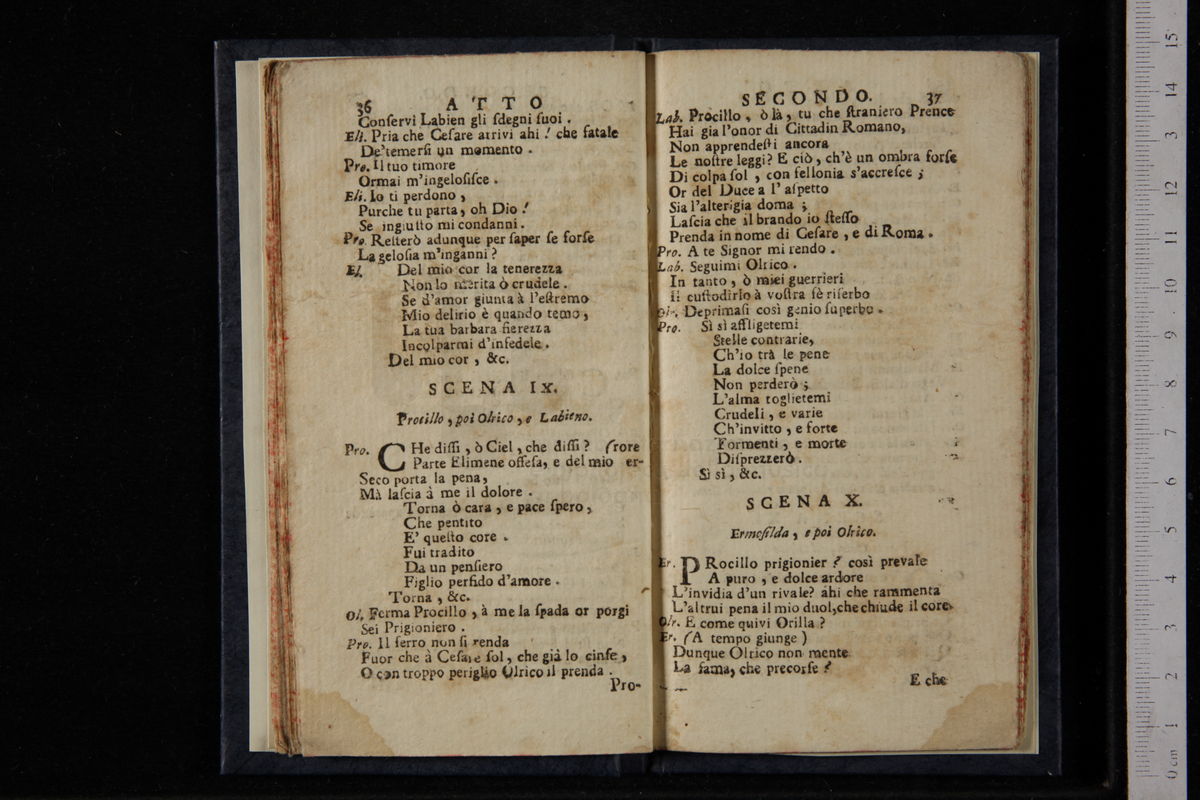 36 ATTO
Conſervi Labien gli ſdegni ſuoi .
Eli. Pria che Ceſare arrivi ahi ! che fatale
De'temerſi un momento .
Pro. Il tuo timore
Ormai m'ingeloſiſce .
Eli. Io ti perdono ,
Purche tu parta, oh Dio !
Se ingiuſto mi condanni .
Pro. Reſterò adunque per ſaper ſe forſe
La geloſia m'inganni ?
El. Del mio cor la tenerezza
Non lo merita ò crudele .
Se d'amor giunta à l'eſtremo
Mio delirio è quando temo ,
La tua barbara fierezza
Incolparmi d'infedele .
Del mio cor , &c.
SCENA IX.
Procillo , poi Olrico , e Labieno.
Pro. CHe diſſi , ò Ciel , che diſſi ? (rore
Parte Elimene offeſa, e del mio er-
Seco porta la pena,
Mà laſcia à me il dolore .
Torna ò cara , e pace ſpero ,
Che pentito
E' queſto core .
Fui tradito
Da un penſiero
Figlio perfido d'amore .
Torna , &c.
Ol. Ferma Procillo , à me la ſpada or porgi
Sei Prigioniero .
Pro. Il ferro non ſi renda
Fuor che à Ceſare ſol , che già lo cinſe ,
O con troppo periglio Olrico il prenda .
Pro-
SECONDO. 37
Lab. Procillo , ò là , tu che ſtraniero Prence
Hai gia l'onor di Cittadin Romano,
Non apprendeſti ancora
Le noſtre leggi? E ciò , ch'è un ombra forſe
Di colpa ſol , con fellonia s'accreſce ;
Or del Duce a l' aſpetto
Sia l'alterigia doma ;
Laſcia che il brando io ſteſſo
Prenda in nome di Ceſare , e di Roma .
Pro. A te Signor mi rendo .
Lab. Seguimi Olrico .
In tanto , ò miei guerrieri
Il cuſtodirlo à voſtra fè riſerbo
Ol. Deprimaſi così genio ſuperbo .
Pro. Sì sì affligetemi
Stelle contrarie,
Ch'io trà le pene
La dolce ſpene
Non perderò ;
L'alma toglietemi
Crudeli , e varie
Ch'invitto , e forte
Tormenti , e morte
Diſprezzerò .
Sì sì , &c.
SCENA X.
Ermeſilda , e poi Olrico.
Er. PRocillo prigionier ? così prevale
A puro , e dolce ardore
L'invidia d'un rivale? ahi che rammenta
L'altrui pena il mio duol,che chiude il core.
Olr. E come quivi Orilla ?
Er. (A tempo giunge )
Dunque Olrico non mente
La fama, che precorſe ?
E che
0 cm 1 2 3 4 5 6 7 8 9 10 11 12 13 14 15